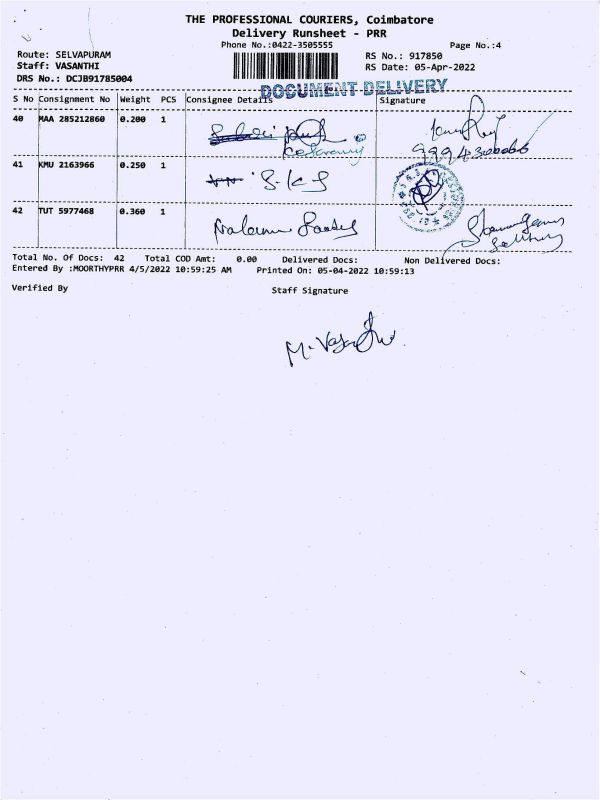 THE PROFESSIONAL COURIERS, Coimbatore
Delivery Runsheet - PRR
Phone No.:0422-3505555 Page No.:4
Route: SELVAPURAM RS No.: 917850
Staff: VASANTHI RS Date: 05-Apr-2022
DRS No.: DCJB91785004
DOCUMENT DELIVERY
S No Consignment No Weight PCS Consignee Details Signature
40 MAA 285212860 0.200 1
41 KMU 2163966 0.250 1 S.K.S
42 TUT 5977468 0.360 1
Total No. Of Docs: 42 Total COD Amt: 0.00 Delivered Docs: Non Delivered Docs:
Entered By :MOORTHYPRR 4/5/2022 10:59:25 AM Printed On: 05-04-2022 10:59:13
Verified By Staff Signature